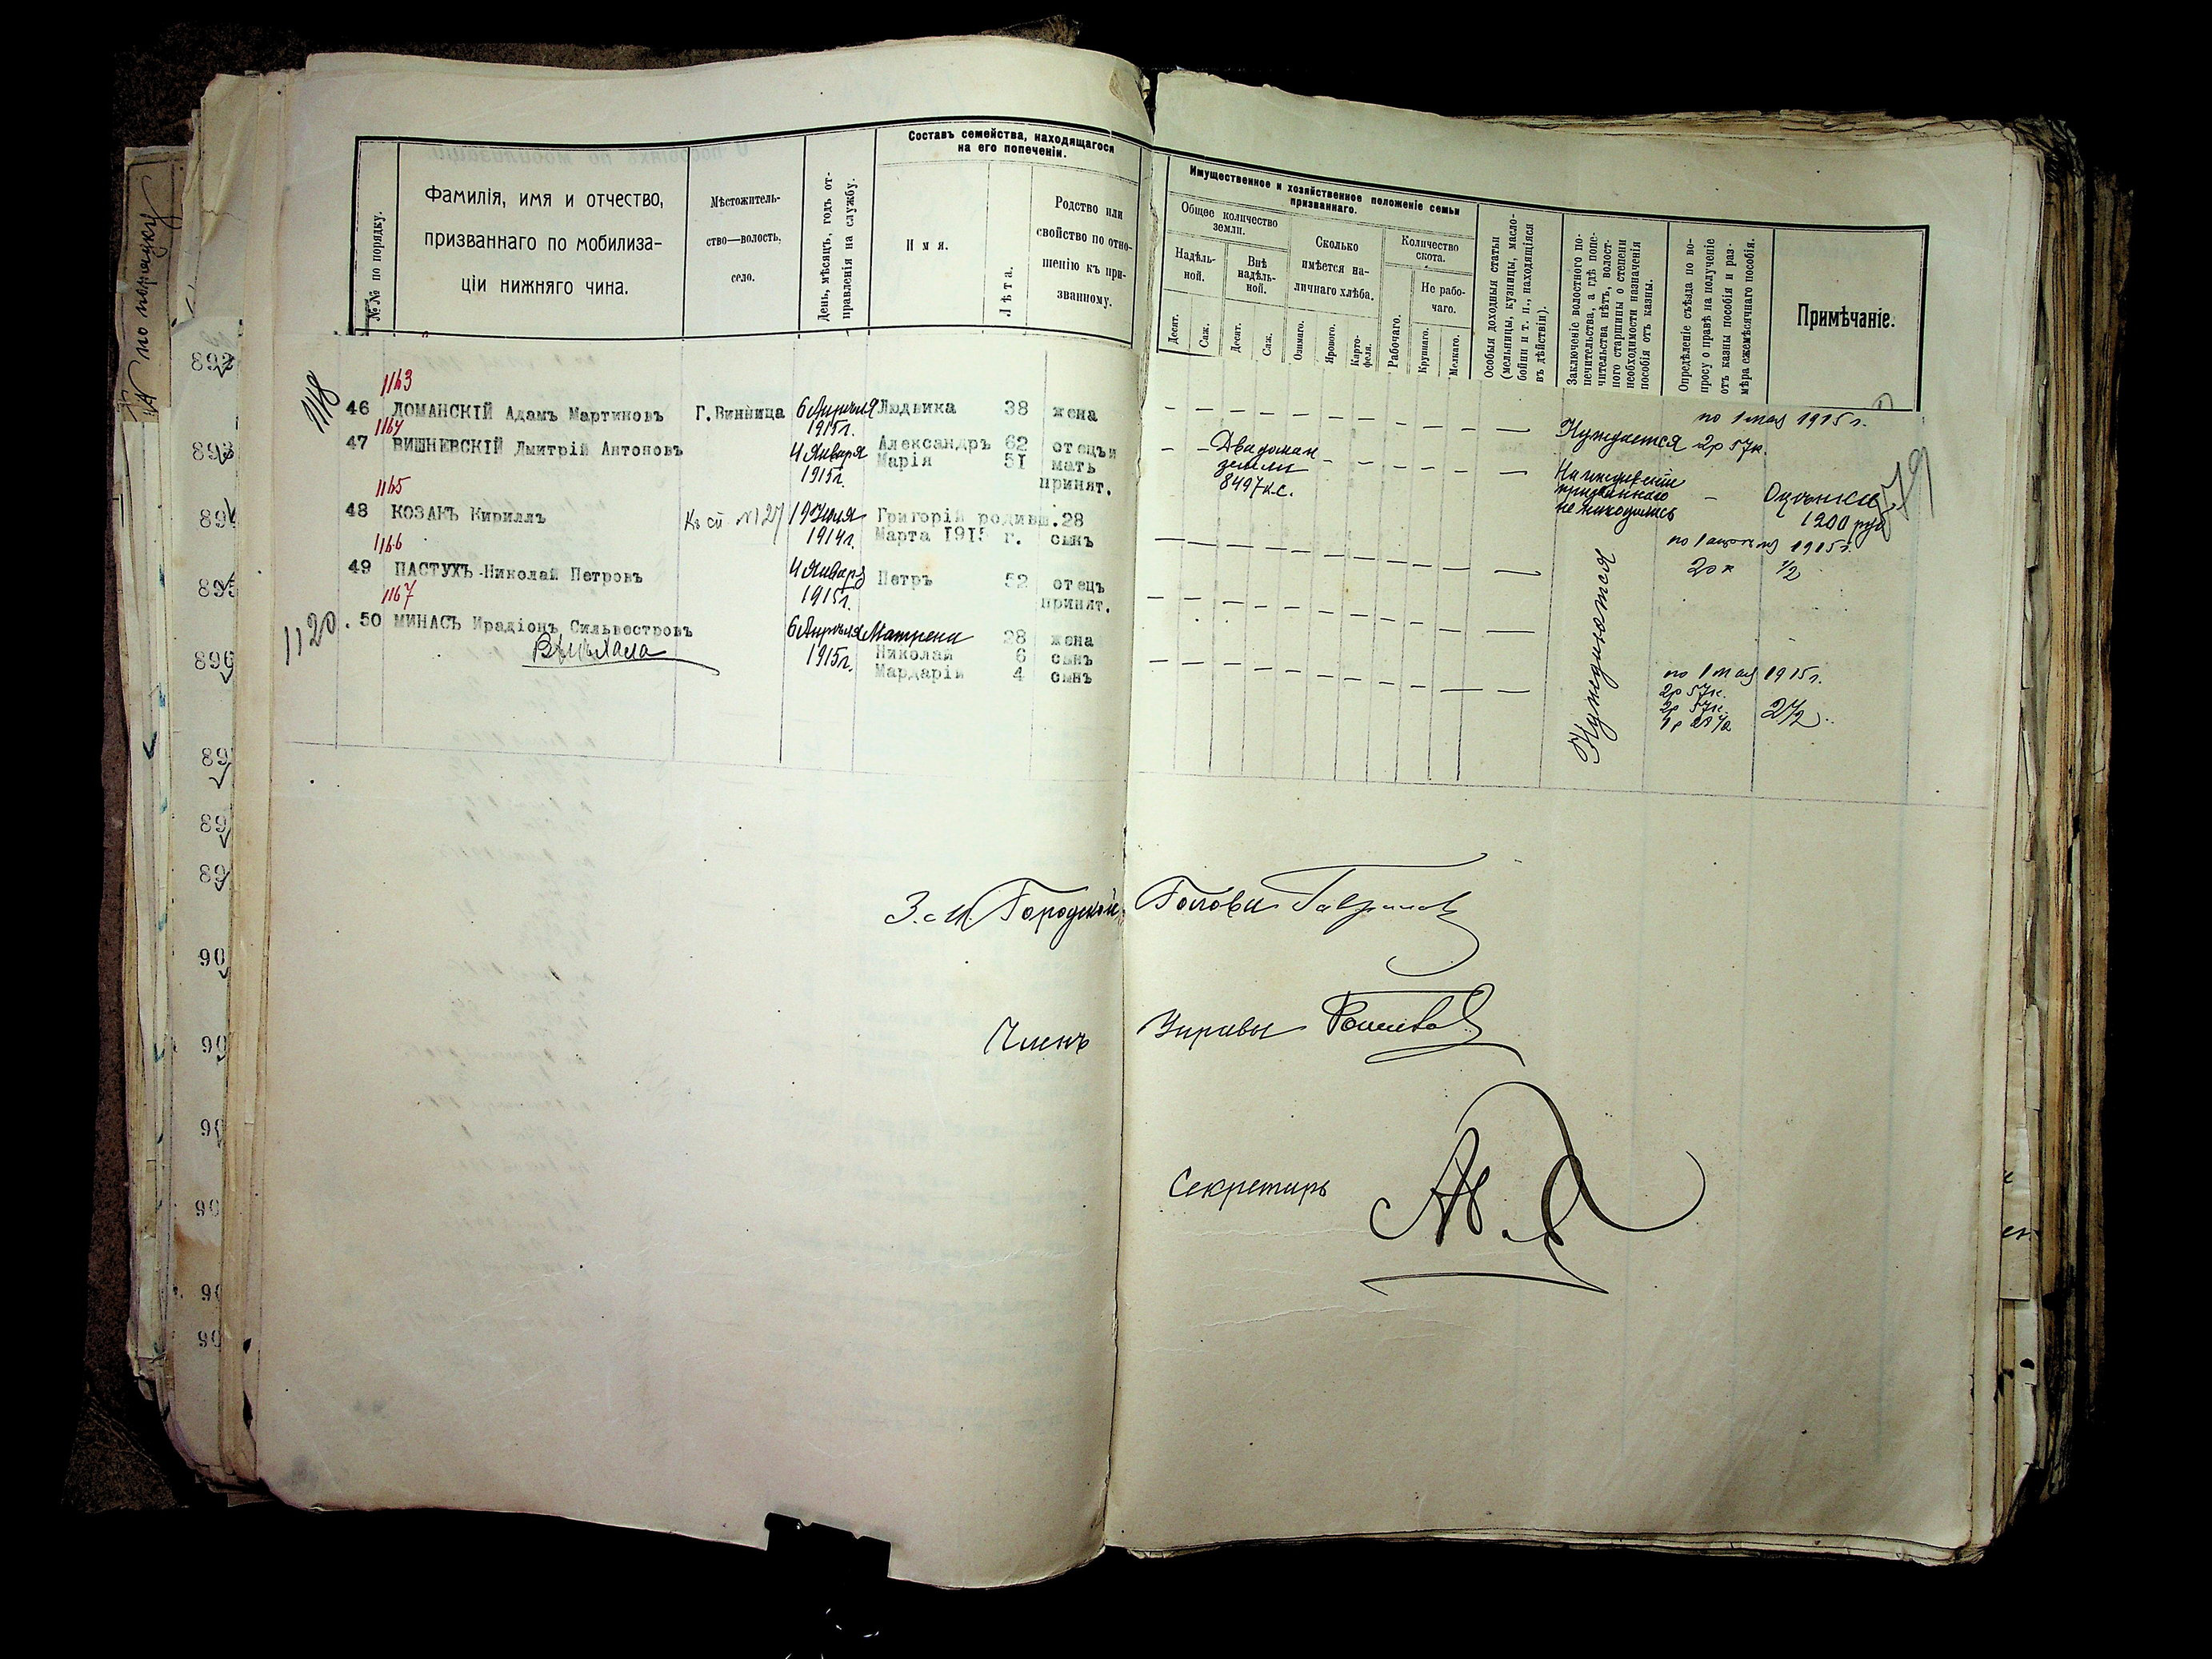 по порядку
Составъ семейства, находящагося
на его попеченіи.
№№ по порядку.
Фамилія, имя и отчество,
призваннаго по мобилиза-
ціи нижняго чина.
Мѣстожитель-
ство—волость,
село.
День, мѣсяцъ, годъ от-
правленія на службу.
Имя.
Лѣта.
Родство или
свойство по отно-
шенію къ при-
званному.
Имущественное и хозяйственное положеніе семьи
призваннаго.
Общее количество
земли.
Надѣль-
ной.
Внѣ
надѣль-
ной.
Десят.
Саж.
Десят.
Саж.
Сколько
имѣется на-
личнаго хлѣба.
Озимаго.
Яроваго.
Карто-
феля.
Количество
скота.
Рабочаго.
Не рабо-
чаго.
Крупнаго.
Мелкаго.
Особыя доходныя статьи
(мельницы, кузницы, масло-
бойни и т. п., находящіяся
въ дѣйствіи).
Заключеніе волостного по-
печительства, а гдѣ попе-
чительства нѣтъ, волост-
ного старшины о степени
необходимости назначенія
пособія отъ казны.
Опредѣленіе съѣзда по во-
просу о правѣ на полученіе
отъ казны пособія и раз-
мѣра ежемѣсячнаго пособія.
Примѣчаніе.
118
1163
46 ДОМАНСКІЙ Адамъ Мартиновъ Г.Винница 6 Апрѣля 1915г. Людвика 38 жена
Нуждается
по 1 мая 1915 г.
2р 57к.
1164
47 ВИШНЕВСКІЙ Дмитрій Антоновъ 4 Января 1915г. Александръ 62 отецъ и
Марія 51 мать
принят.
Два
земли
8497 к.с.
призваннаго
не находились
Оцѣнки
1200 руб
79
1165
48 КОЗАКЪ Кириллъ Къ сп №127 19 Іюля 1914г. Григорій родивш.28
Марта 1915 г. сынъ
1915г.
1166
49 ПАСТУХЪ Николай Петровъ 4 Января 1915г. Петръ 52 отецъ
принят.
1167
1120. 50 МИНАСЪ Ирадіонъ Сильвестровъ 6 Апрѣля 1915г. Матрена 28 жена
Николай 6 сынъ
Мардарій 4 сынъ
Нуждаются
по 1 мая 1915г.
2р 57к.
2р 57к.
2 1/2
З.с.м. Городской Головы
Членъ Управы
Секретарь
892
893
894
895
896